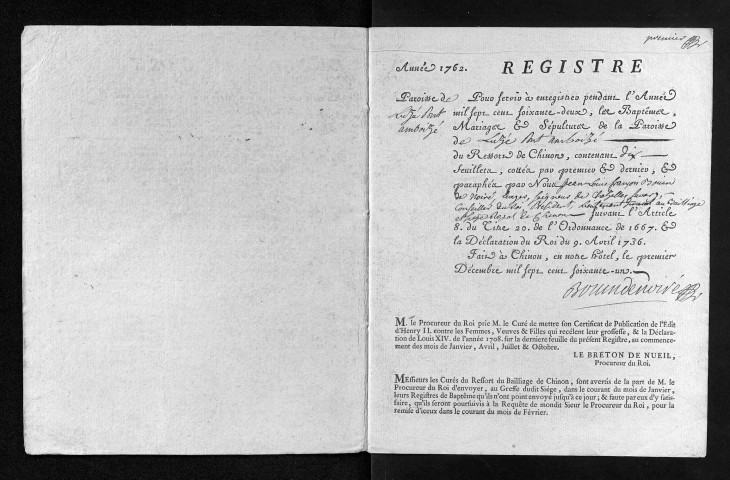 premier
Année 1762. REGISTRE
Paroisse de
Luzé Pont
amboizé
Pour servir à enregistrer pendant l'Année
mil sept cent soixante-deux, les Baptêmes,
Mariages & Sépultures de la Paroisse
de Luzé Pont amboizé
du Ressort de Chinon, contenant dix
feuillets, cottés par premier & dernier, &
paraphés par Nous Jean Louis françois Bouin
de Noiré, Seigneur de
Conseiller du Roi, Président, Lieutenant Général au Bailliage
& Siège Royal de Chinon suivant l'Article
8. du Titre 20. de l'Ordonnance de 1667. &
la Déclaration du Roi du 9. Avril 1736.
Fait à Chinon, en notre hôtel, le premier
Décembre mil sept cent soixante-un.
Bouin de noiré
M. le Procureur du Roi prie M. le Curé de mettre son Certificat de Publication de l'Edit
d'Henry II. contre les Femmes, Veuves & Filles qui recélent leur grossesse, & la Déclara-
tion de Louis XIV. de l'année 1708. sur la derniere feuille du présent Registre, au commence-
ment des mois de Janvier, Avril, Juillet & Octobre.
LE BRETON DE NUEIL,
Procureur du Roi.
MEssieurs les Curés du Ressort du Bailliage de Chinon, sont avertis de la part de M. le
Procureur du Roi d'envoyer, au Greffe dudit Siége, dans le courant du mois de Janvier,
leurs Registres de Baptême qu'ils n'ont point envoyé jusqu'à ce jour; & faute par eux d'y satis-
faire, qu'ils seront poursuivis à la Requête de mondit Sieur le Procureur du Roi, pour la
remise d'iceux dans le courant du mois de Février.